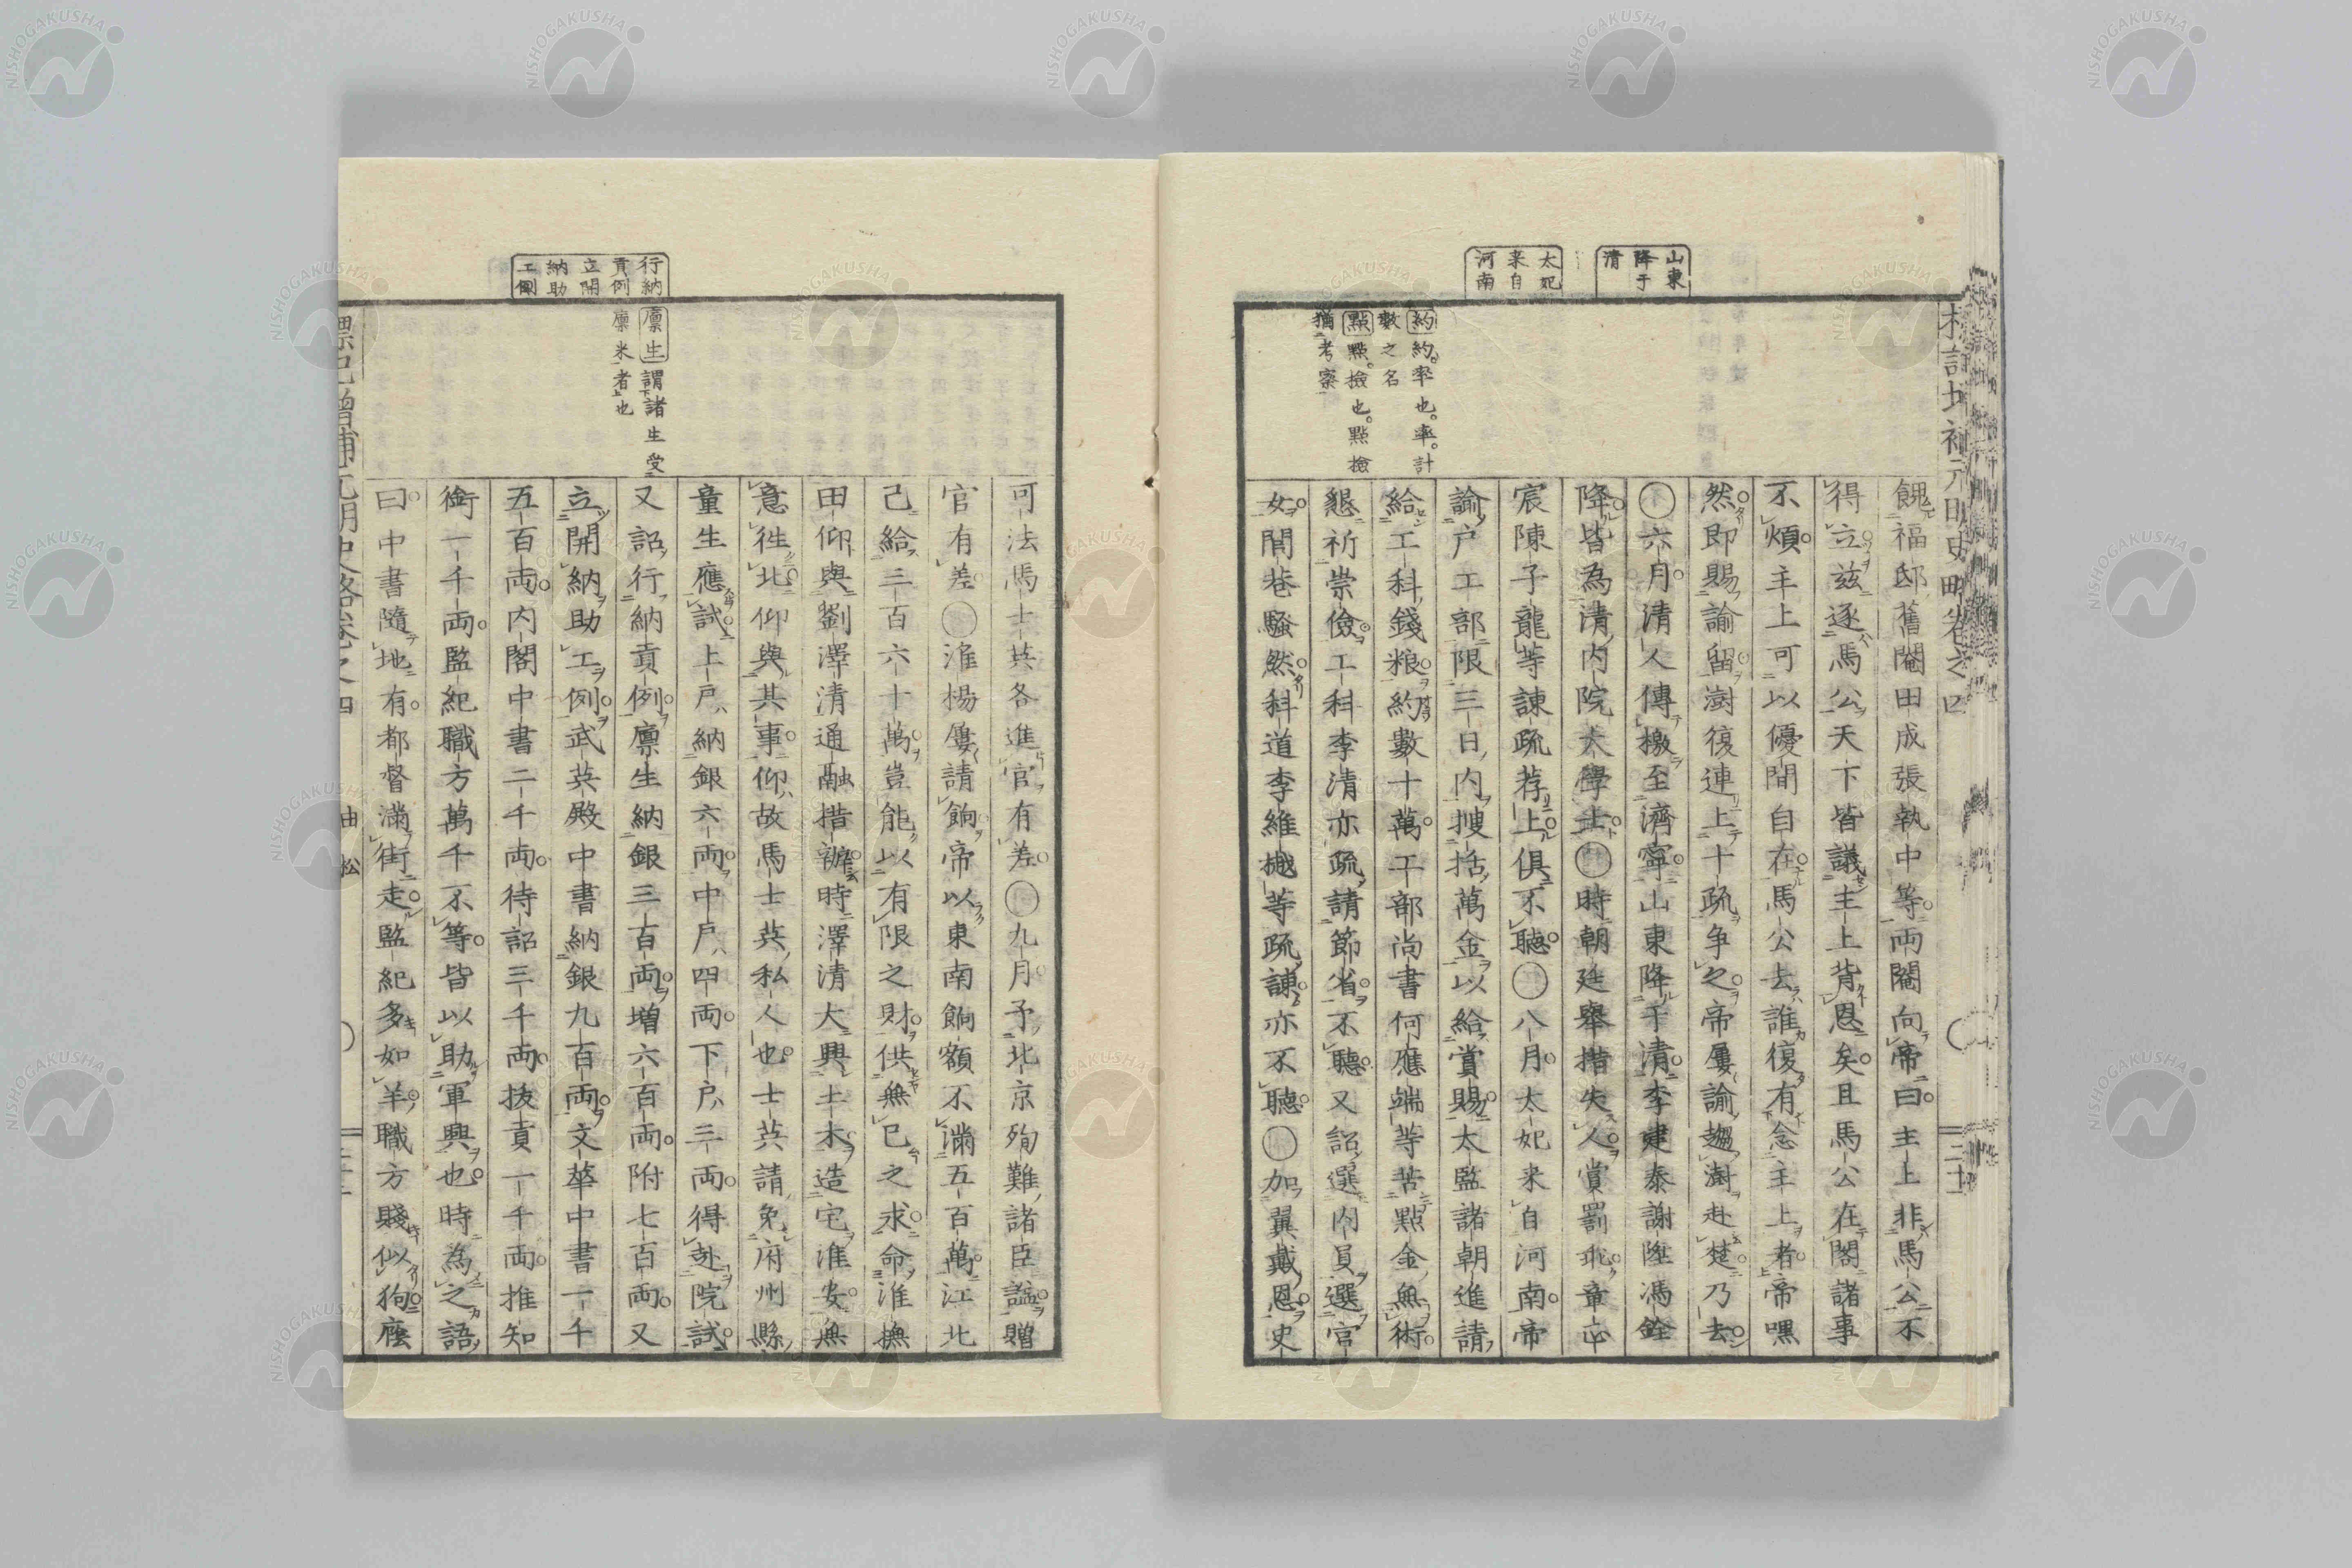 山東
降于
清
太妃
来自
河南
約約。率也。率。計
數之名
點點。檢也。點檢
猶考察
餽福邸舊閹田成張執中等。両閹向帝曰。主上非馬公不
得立。茲逐馬公天下皆議主上背恩矣。且馬公在閣諸事
不煩。主上可以優閒自在。馬公去誰復有念主上者。帝嘿
然。即賜諭留澍復連上十疏争之。帝屢諭趨澍赴楚。乃去。
〇六月。清人傳檄至濟寧。山東降于清。李建泰謝陞馮銓
降。皆為清内院大學士。〇時朝廷舉措失人。賞罰乖章正
宸陳子龍等諫疏荐上。俱不聴。〇八月。太妃来自河南。帝
諭戸工部限三日内搜括萬金以給賞賜。太監諸朝進請
給工科錢粮。約數十萬。工部尚書何應端等苦點金無術。
懇祈崇儉。工科李清亦疏請節省。不聴。又詔選内員選宮
女。閭巷騒然。科道李維樾等疏諫。亦不聴。〇加翼戴恩。史
行納
貢例
立開
納助
工例
廪生謂諸生受
廪米者也
可法馬士英各進官有差。〇九月。予北京殉難諸臣諡。贈
官有差。〇淮楊屢請餉。帝以東南餉額不滿五百萬。江北
己給三百六十萬。豈能以有限之財。供無已之求。命淮撫
田仰與劉澤清通融措辦。時澤清大興土木。造宅淮安。無
意徃北。仰與其事。仰故馬士英私人也。士英請免府州縣
童生應試。上戸納銀六両。中戸四両。下戸三両。得赴院試。
又詔行納貢例。廪生納銀三百両。増六百両。附七百両。又
立開納助工例。武英殿中書納銀九百両。文華中書一千
五百両。内閣中書二千両。待詔三千両。抜貢一千両。推知
銜一千両。監紀職方萬千不等。皆以助軍興也。時為之語
曰。中書隨地有。都督滿街走。監紀多如羊。職方賤似狗。廕